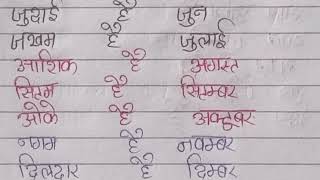 जुदाई है जुन
जखम है जुलाई
आशिक है अगस्त
सितम है सितम्बर
ओके है अक्टुबर
नगम है नवम्बर
दिलदार है दिम्बर